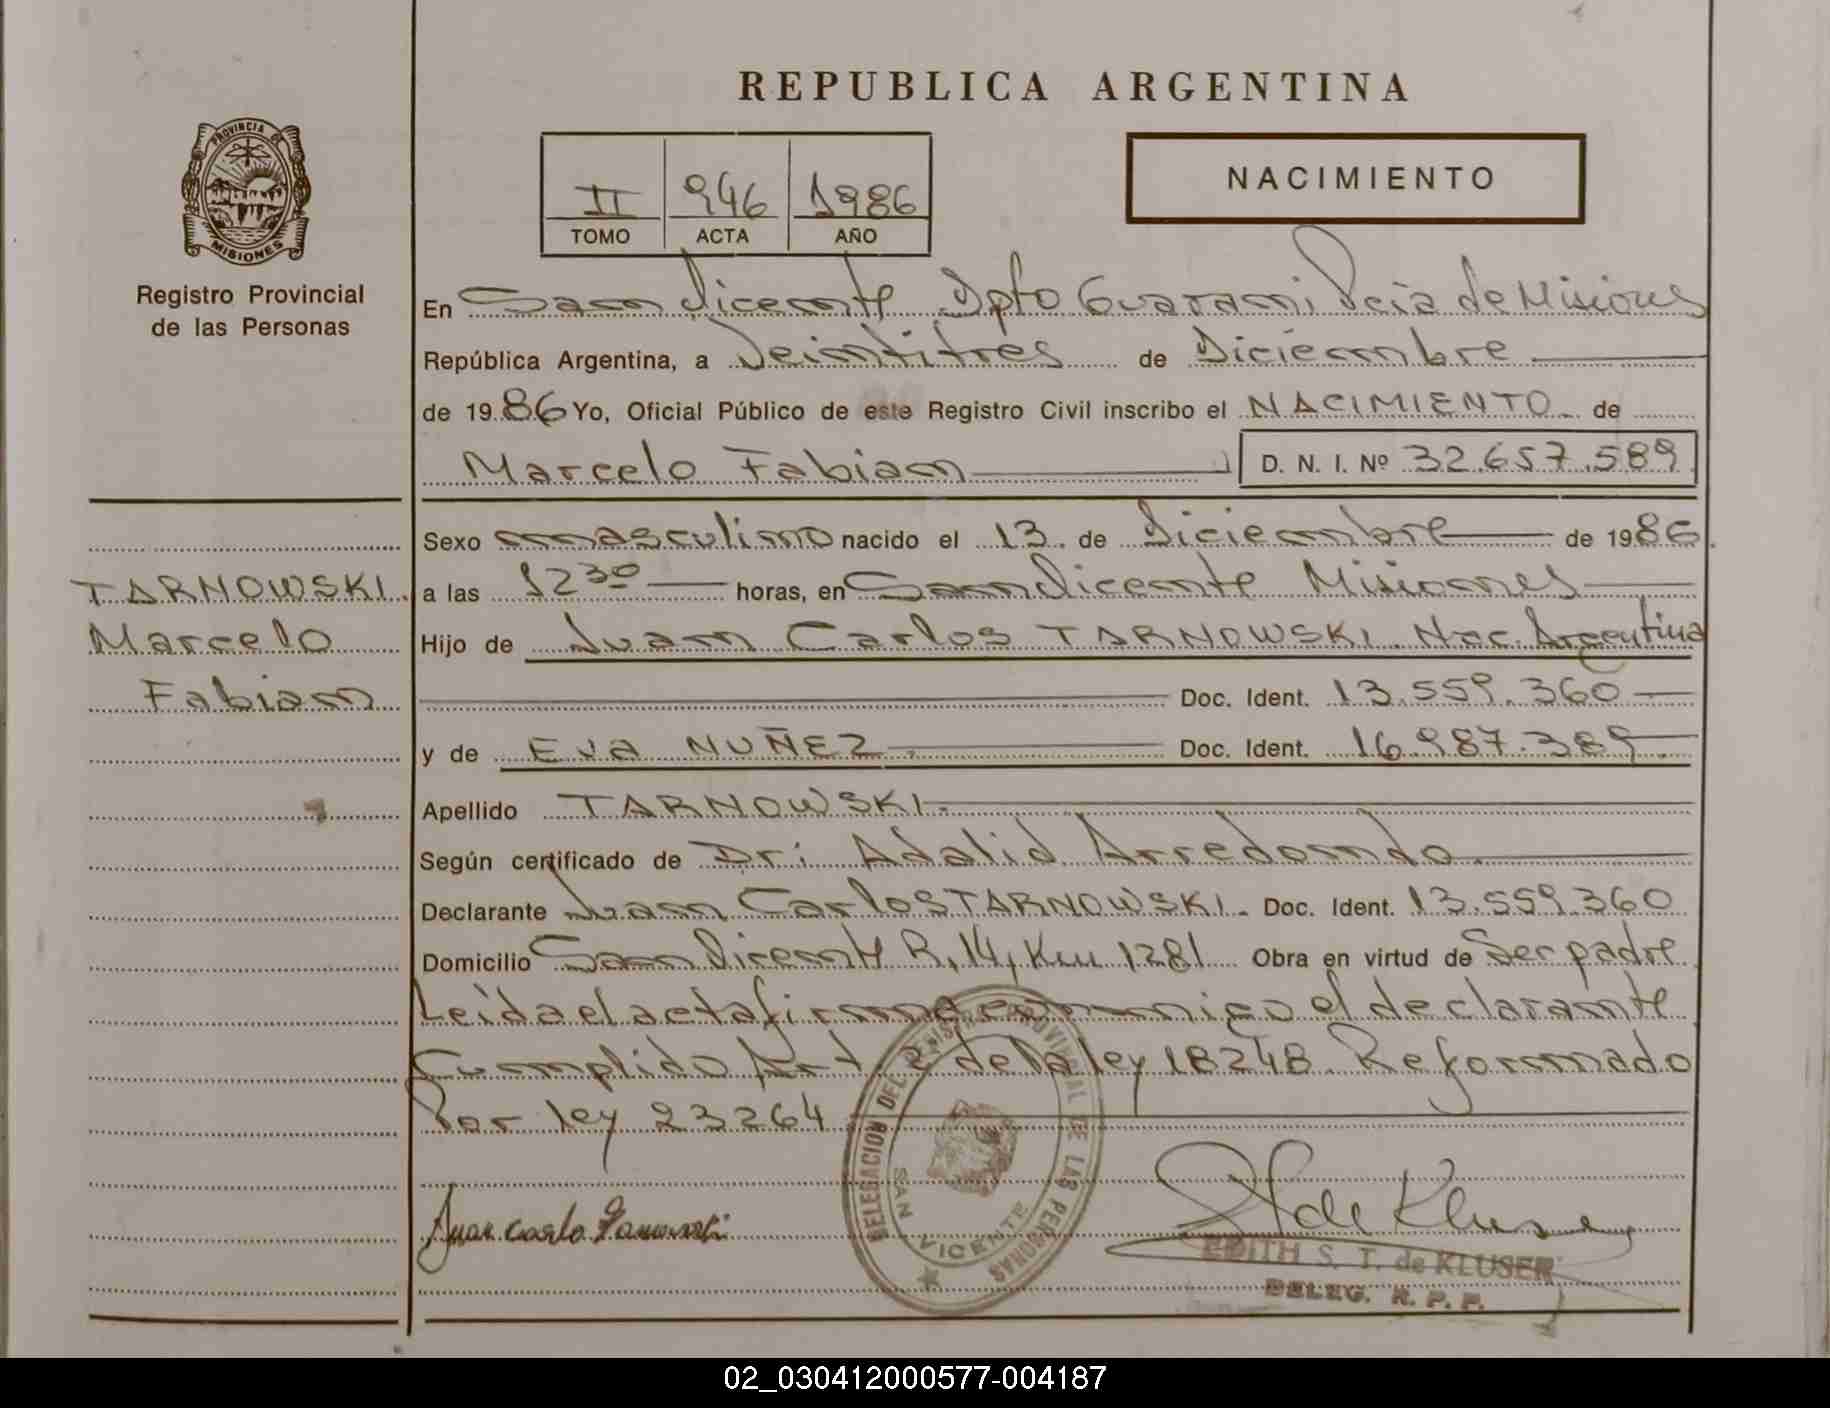 REPUBLICA ARGENTINA
PROVINCIA DE
MISIONES
Registro Provincial
de las Personas
II 946 1986
TOMO ACTA AÑO
NACIMIENTO
En San Vicente Dpto Guarani Pcia de Misiones
República Argentina, a Veintitres de Diciembre
de 1986 Yo, Oficial Público de este Registro Civil inscribo el NACIMIENTO de
Marcelo Fabian D. N. I. Nº 32.657.589
TARNOWSKI
Marcelo
Fabian
Sexo masculino nacido el 13 de Diciembre de 1986
a las 12 30 horas, en San Vicente Misiones
Hijo de Juan Carlos TARNOWSKI. Nac. Argentina
Doc. Ident. 13.559.360
y de EVA NUÑEZ. Doc. Ident. 16.987.389.
Apellido TARNOWSKI.
Según certificado de Dr: Adalid Arredondo
Declarante Juan Carlos TARNOWSKI. Doc. Ident. 13.559.360
Domicilio San Vicente R, 14, Km 1281 Obra en virtud de Ser padre
Leída el acta firma conmigo el declarante
Cumplido Art 2 de la ley 18248 Reformado
Por ley 23264
DELEGACION DEL REGISTRO PROVINCIAL DE LAS PERSONAS
SAN VICENTE
Juan Carlo Tarnowski
de Kluser
EDITH S. T. de KLUSER
DELEG. R. P. P.
02_030412000577-004187